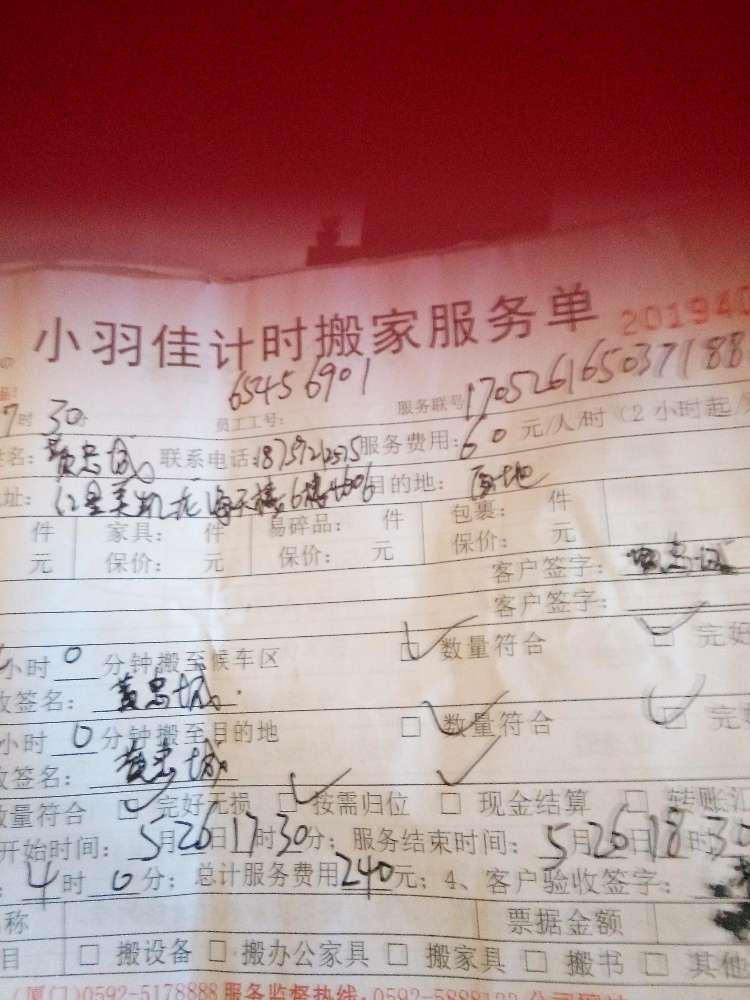 小羽佳计时搬家服务单 20194
7时30分 员工工号: 65456901 服务联号 1705261650371188
签名: 黄忠城 联系电话: 服务费用: 60 元/人/时（2小时起/
址: 海天楼 6楼4606 目的地: 百地
件 家具: 件 易碎品: 件 包裹: 件
元 保价: 元 保价: 元 保价: 元
客户签字: 黄忠城
客户签字:
小时 0 分钟搬至候车区 ☑ 数量符合 ☑ 完好
收签名: 黄忠城
小时 0 分钟搬至目的地 ☑ 数量符合 ☑ 完
收签名: 黄忠城
数量符合 ☑ 完好无损 ☑ 按需归位 ☑ 现金结算 □ 转账汇
开始时间: 5月26日17时30分; 服务结束时间: 5月26日18时30
: 4时0分; 总计服务费用240元; 4、客户验收签字:
称 票据金额
目 □ 搬设备 □ 搬办公家具 □ 搬家具 □ 搬书 □ 其他
(厦门)0592-5178888 服务监督热线: 0592-5888